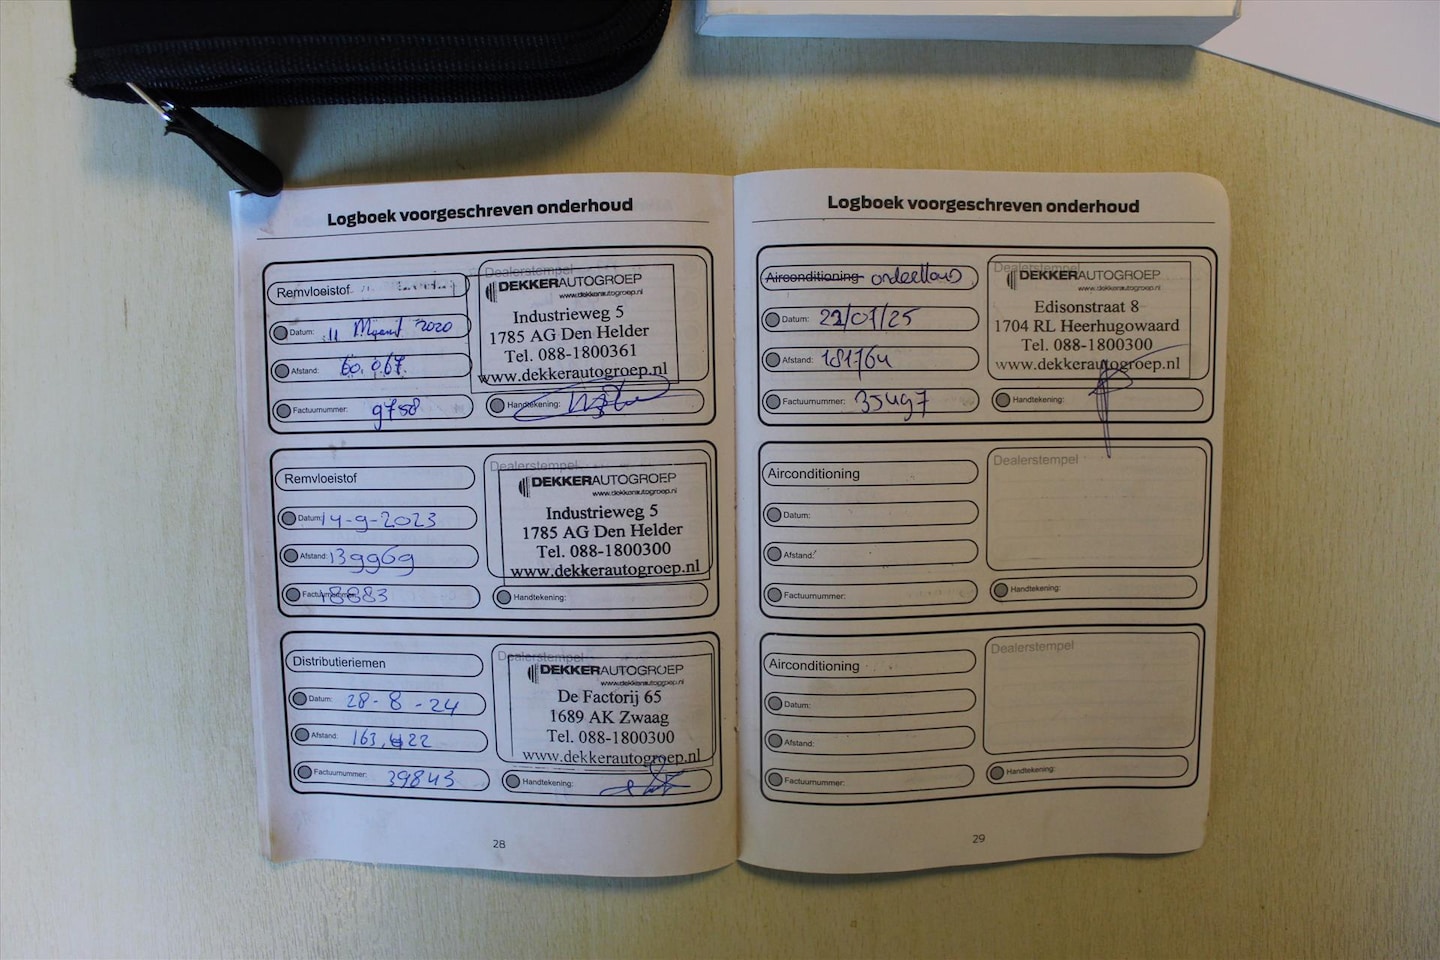 Logboek voorgeschreven onderhoud
Remvloeistof
Dealerstempel
DEKKERAUTOGROEP
www.dekkerautogroep.nl
Industrieweg 5
1785 AG Den Helder
Tel. 088-1800361
www.dekkerautogroep.nl
Datum: 11 Maart 2020
Afstand: 60.067
Factuurnummer: 9758
Handtekening:
Remvloeistof
Dealerstempel
DEKKERAUTOGROEP
www.dekkerautogroep.nl
Industrieweg 5
1785 AG Den Helder
Tel. 088-1800300
www.dekkerautogroep.nl
Datum: 14-9-2023
Afstand: 139969
Factuurnummer: 18883
Handtekening:
Distributieriemen
Dealerstempel
DEKKERAUTOGROEP
www.dekkerautogroep.nl
De Factorij 65
1689 AK Zwaag
Tel. 088-1800300
www.dekkerautogroep.nl
Datum: 28-8-24
Afstand: 163,422
Factuurnummer: 39845
Handtekening:
28
Logboek voorgeschreven onderhoud
Airconditioning
Dealerstempel
DEKKERAUTOGROEP
www.dekkerautogroep.nl
Edisonstraat 8
1704 RL Heerhugowaard
Tel. 088-1800300
www.dekkerautogroep.nl
Datum: 22/01/25
Afstand: 181764
Factuurnummer: 35497
Handtekening:
Airconditioning
Dealerstempel
Datum:
Afstand:
Factuurnummer:
Handtekening:
Airconditioning
Dealerstempel
Datum:
Afstand:
Factuurnummer:
Handtekening:
29